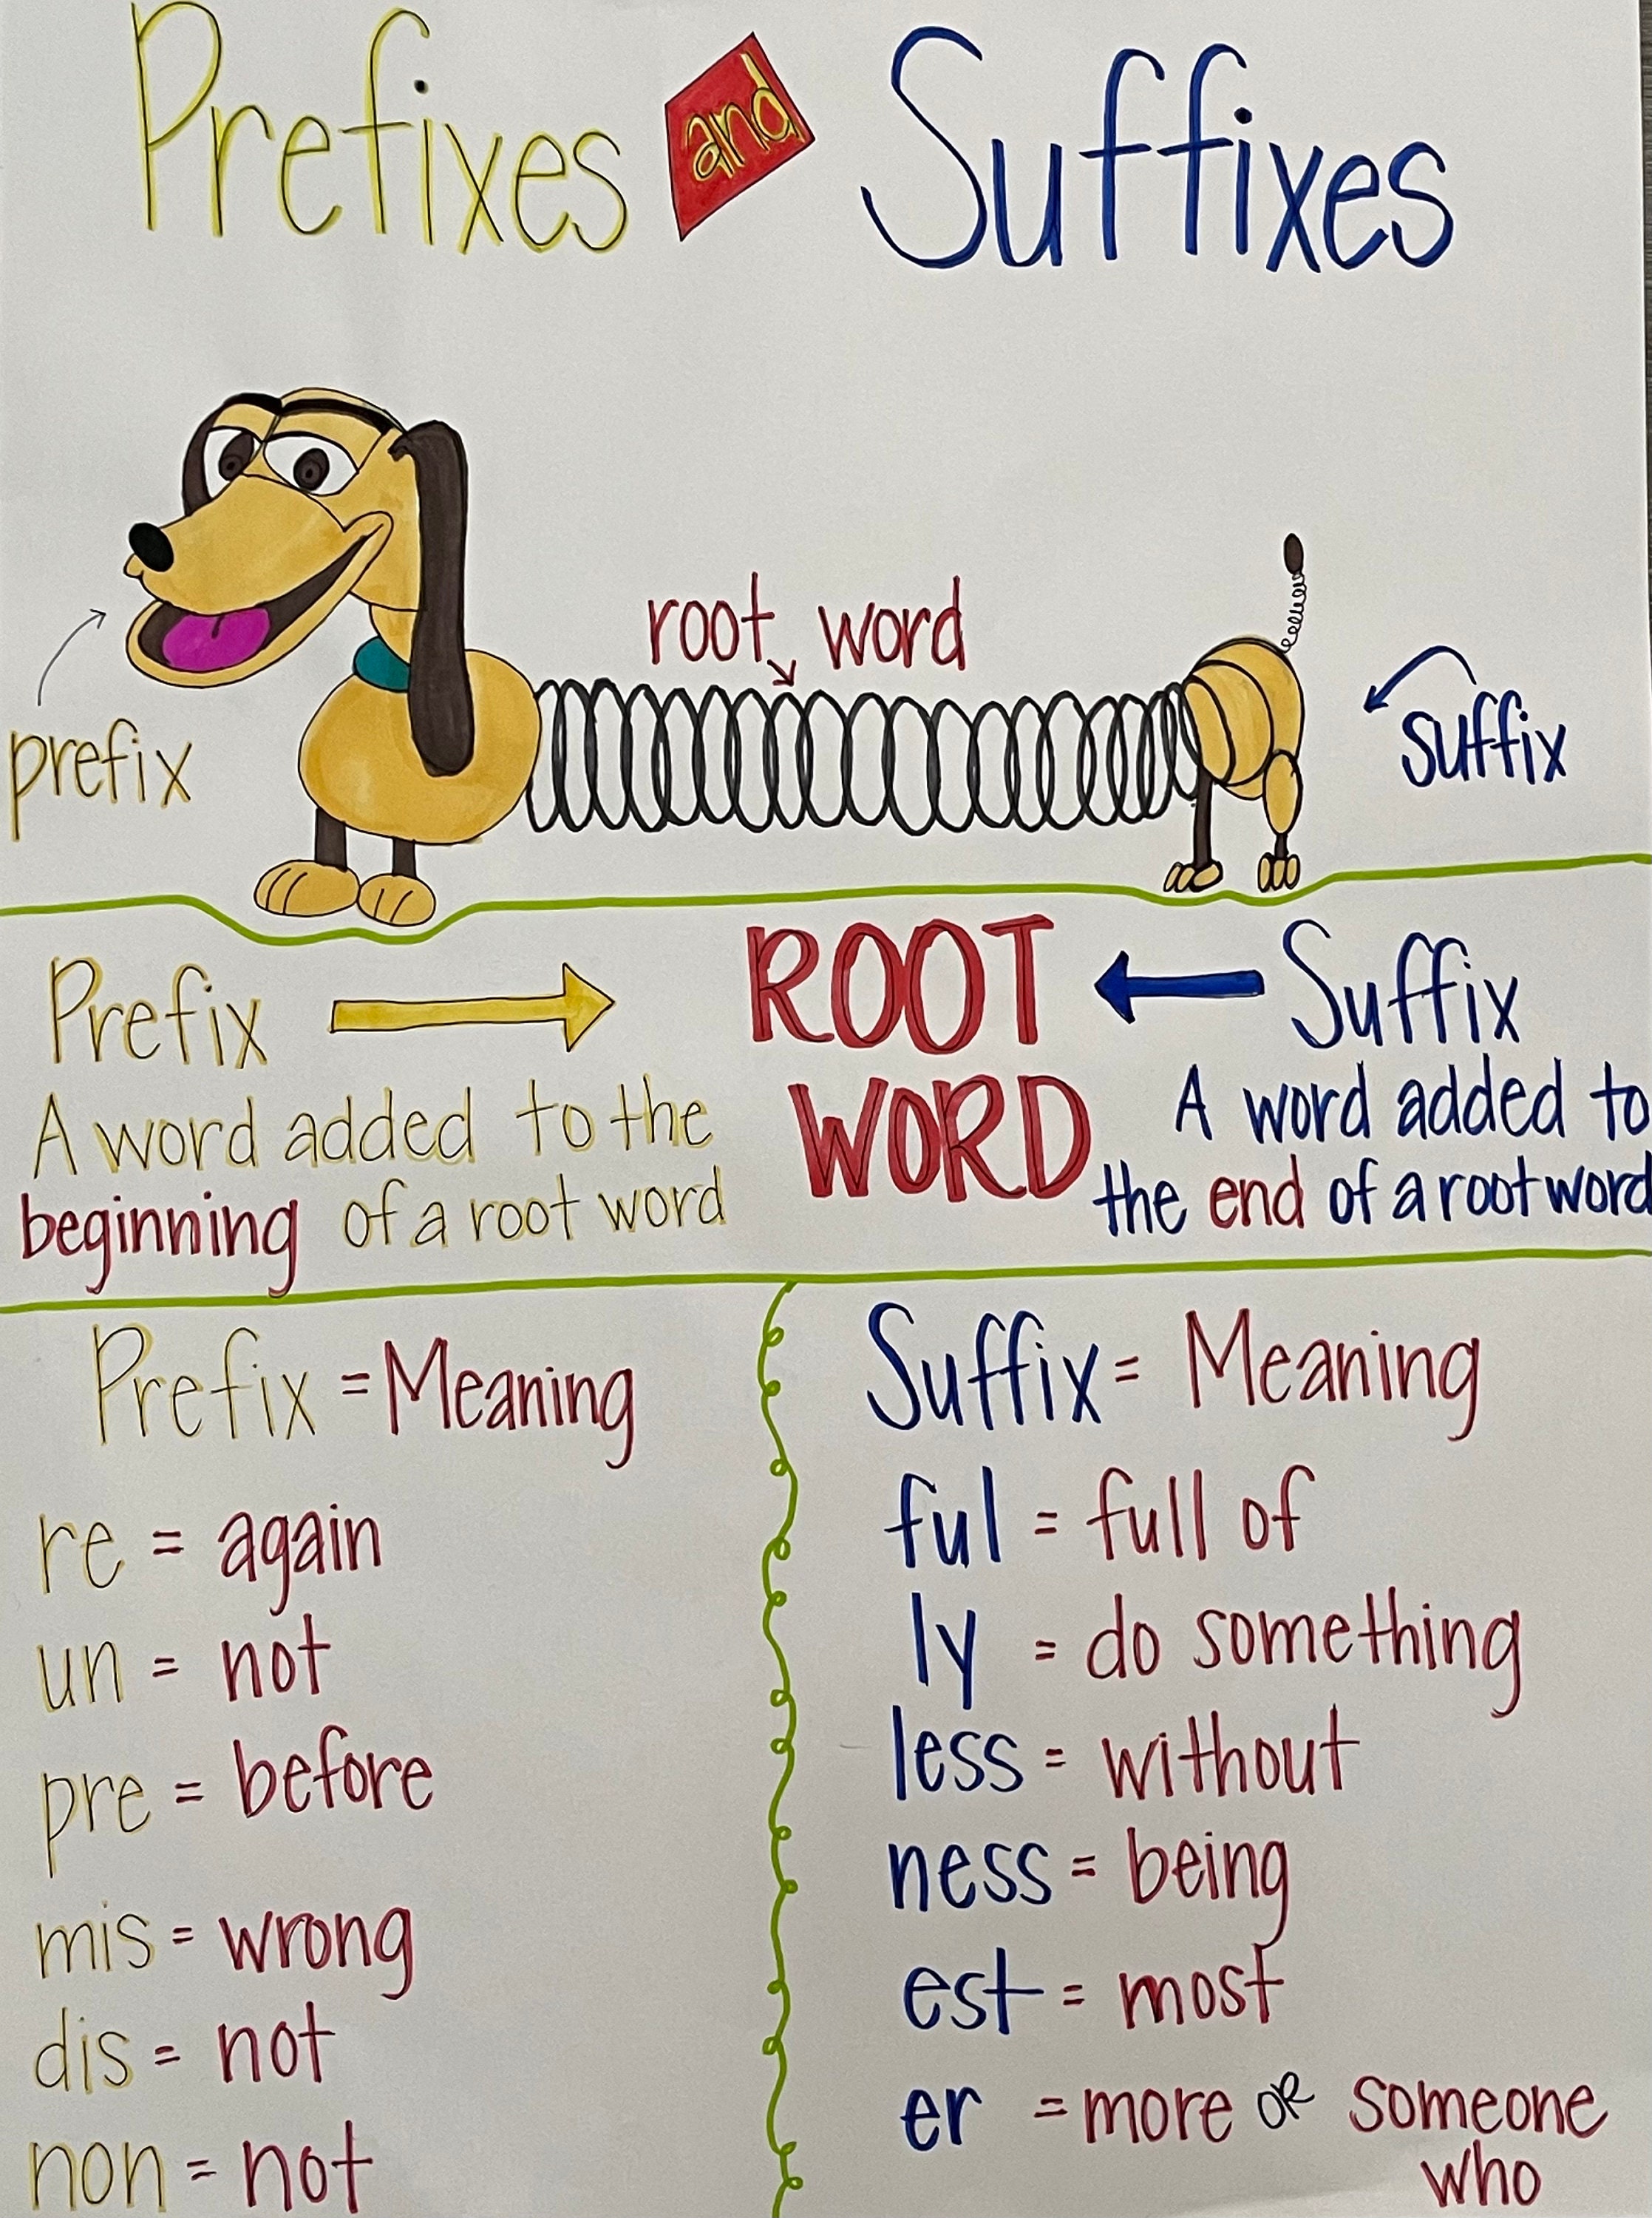 Prefixes and Suffixes
root word
prefix
suffix
Prefix
A word added to the
beginning of a root word
ROOT
WORD
Suffix
A word added to
the end of a root word
Prefix = Meaning
re = again
un = not
pre = before
mis = wrong
dis = not
non = not
Suffix = Meaning
ful = full of
ly = do something
less = without
ness = being
est = most
er = more OR someone
who